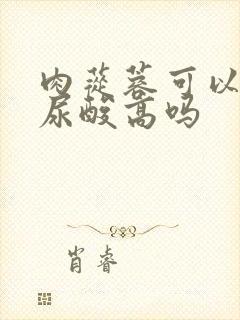 肉蓯蓉可以
尿酸高吗
肖睿